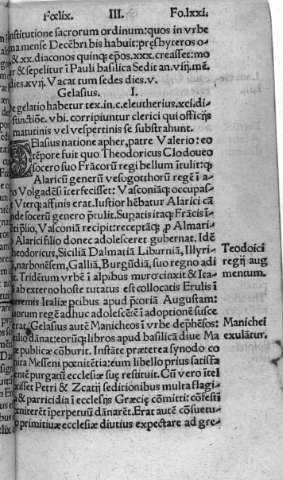 Fœlix. III. Fo.lxxi.
institutione sacrorum ordinum: quos in vrbe
mense Decẽbri bis habuit: presbyteros
& .xxx. diaconos quinq; ep̃os .xxx. creasset: mo
& sepelitur ĩ Pauli basilica Sedit an.viij.mẽ.
dies.xvij. Vacat tum sedes dies.v.
Gelasius. I.
De gelatio habetur tex.in.c.eleutherius.xci.di-
stinctiõe. vbi corripiuntur clerici qui officijs
matutinis vel vespertinis se subtrahunt.
GElasius natione apher, patre Valerio: eo
tẽpore fuit quo Theodoricus Clodoueo
socero suo Frãcorũ regi bellum ĩtulit: qp
Alaricũ generũ vesogothorũ regẽ ĩ a-
Volgadẽsi ĩterfecisset: Vasconiãq; occupas-
Vtriq; affinis erat. Iustior hẽbatur Alarici cã
socerũ genero p̃tulit. Supatis itaq; Frãcis ĩ
p̃lio, Vasconia recipit: receptãq; p Almari-
Alarici filio donec adolesceret gubernat. Idẽ
Theodoricus, Siciliã Dalmatiã Liburniã, Illyri-
narbonẽsem, Galliã, Burgũdiã, suo regno adi
it. Tridẽtum vrbẽ ĩ alpibus muro cinxit & Ita-
ab externo hoste tutatus est collocatis Erulis ĩ
Italiæ p̃tibus apud p̃toriã Augustam:
uorum regẽ adhuc adolescẽtẽ ĩ adoptionẽ susce
erat. Gelasius autẽ Manicheos ĩ vrbe dep̃hẽsos:
exilio dãnat: eorũq; libros apud basilicã diuæ Ma
publicæ cõburit. Instãte præterea synodo
Messeni pœnitẽtia: eum libello prius satisfa
purgatũ ecclesiæ suę restituit. Cũ vero ĩtel
xisset Petri & Zcatij seditionibus multa flagi
& parricidia ĩ ecclesijs Græciæ cõmitti: cõfestĩ
pœniterẽt ĩ perpetuũ dãnarẽt. Erat autẽ cõsuetu-
primitiuæ ecclesiæ diutius expectare ad gre-
Teodoici
regĩj aug
mentum.
Manichei
exulãtur.